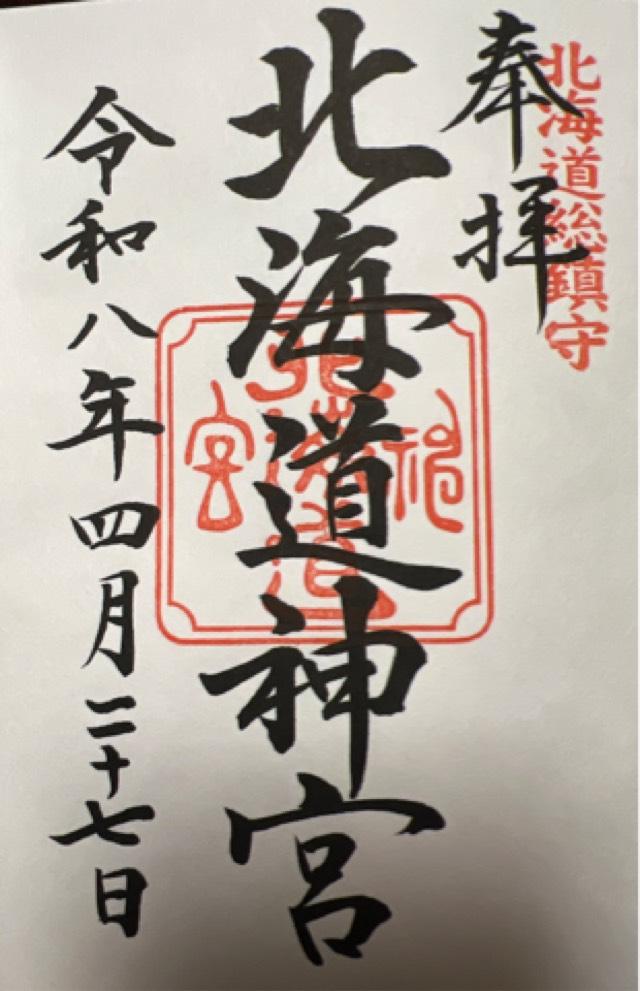 北海道総鎮守
奉拝
北海道神宮
北海道神宮
令和八年四月二十七日